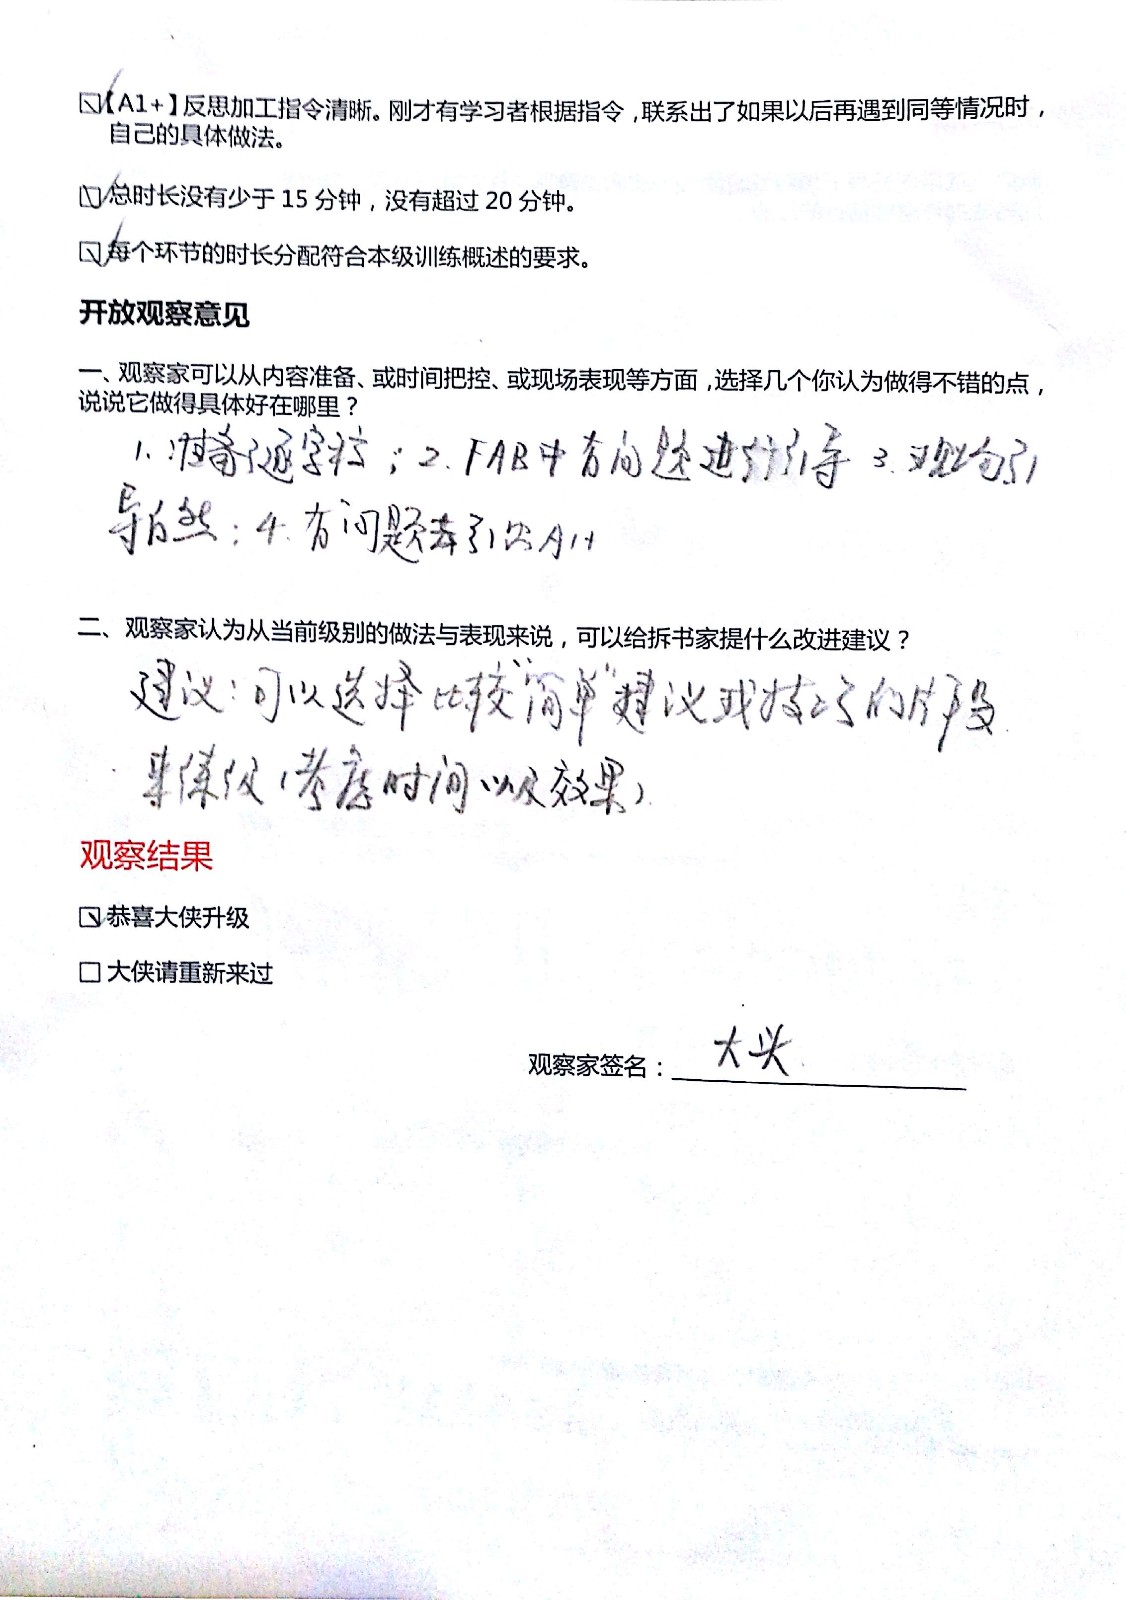 ☑【A1+】反思加工指令清晰。刚才有学习者根据指令,联系出了如果以后再遇到同等情况时,
自己的具体做法。
☑总时长没有少于 15 分钟,没有超过 20 分钟。
☑每个环节的时长分配符合本级训练概述的要求。
开放观察意见
一、观察家可以从内容准备、或时间把控、或现场表现等方面,选择几个你认为做得不错的点,
说说它做得具体好在哪里?
1. 准备了逐字稿;2. FAB中有问题进行引导 3. 现场引
导自然;4. 有问题去引出A1+
二、观察家认为从当前级别的做法与表现来说,可以给拆书家提什么改进建议?
建议:可以选择比较"简单"建议或技巧的片段
来练级(考虑时间以及效果)
观察结果
☑恭喜大侠升级
☐大侠请重新来过
观察家签名: 大头